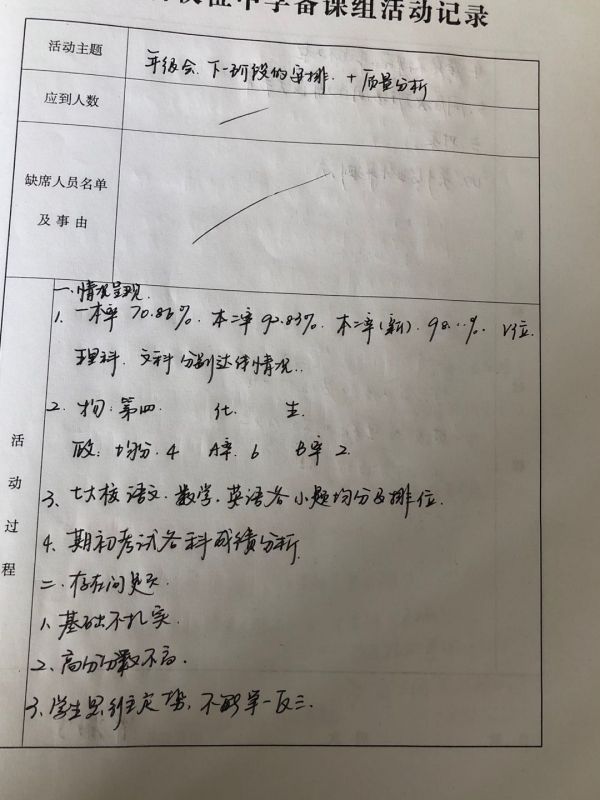 中学备课组活动记录
活动主题
年级会、下一阶段的安排. + 质量分析
应到人数
缺席人员名单
及事由
活动过程
一. 情况呈现.
1. 一本率 70.83%. 本二率 90.83%. 本二率(新). 98. %. 位.
理科、文科分别达线情况..
2. 物: 第四. 化. 生.
政: 均分. 4 A率. 6 B率 2.
3. 七大校语文. 数学. 英语各小题均分及排位.
4. 期初考试各科成绩分析.
二. 存在问题.
1. 基础不扎实.
2. 高分分数不高.
3. 学生思维定势, 不能举一反三.